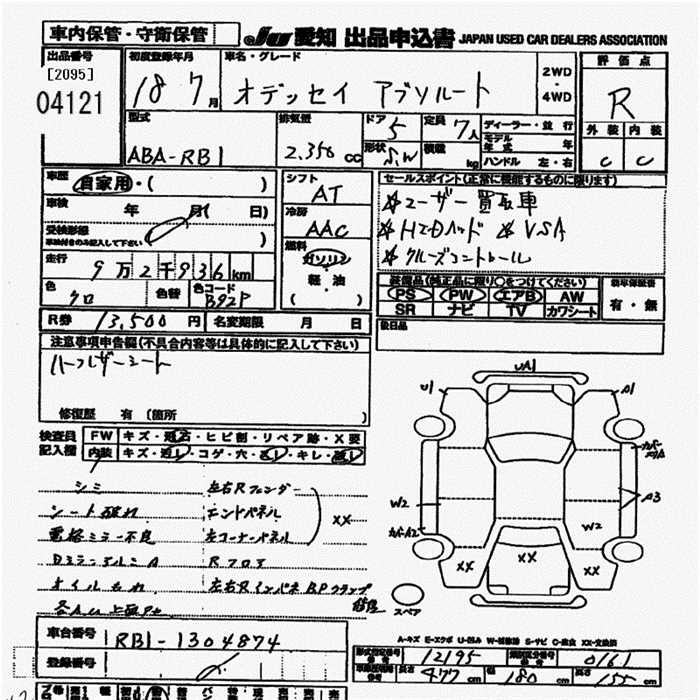 車内保管・守衛保管
JU 愛知 出品申込書 JAPAN USED CAR DEALERS ASSOCIATION
出品番号
[2095]
04121
初度登録年月
18 7月
車名・グレード
オデッセイ アブソルート
2WD
・
4WD
評価点
R
外装 内装
C C
型式
ABA-RB1
排気量
2.350 CC
ドア 5
形状 S.W
定員 7人
積載 kg
ディーラー・並行
モデル年式 年
ハンドル 左・右
車歴
自家用・( )
車検 年 月( 日)
受検形態
車検付きのみ記入して下さい
走行
9万2千936km
色
クロ
色替
色コード
B92P
シフト
AT
冷房
AAC
燃料
ガソリン
軽・油
( )
セールスポイント(正常に機能するものに限ります)
☆ユーザー買取車
☆HIDヘッド ☆VSA
☆クルーズコントロール
装備品(純正品に限り○をつけてください)
PS PW エアB AW
SR ナビ TV カワシート
新車保証書
有・無
後日品
R券 13,500円
名変期限 月 日
注意事項申告欄(不具合内容等は具体的に記入して下さい)
ハーフレザーシート
修復歴 有 〔箇所 〕
検査員
記入欄
FW キズ・飛石・ヒビ割・リペア跡・X要
内装 キズ・汚レ・コゲ・穴・スレ・キレ・破レ
シミ
シート破れ
電格ミラー不良
オイルもれ
左右Rフェンダー
エンドパネル
左コーナーパネル
Rフロア
左右Rインパネ BPクラップ
修復
XX
UA1
U1
A1
W2
カバーA2
A3
W2
XX
XX
XX
スペア
A-キズ E-エクボ U-凹み W-補修跡 S-サビ C-腐食 XX-交換済
車台番号
RB1-1304874
登録番号
型式指定番号 12195
類別区分番号 0161
長さ 477cm
幅 180cm
高さ 155cm